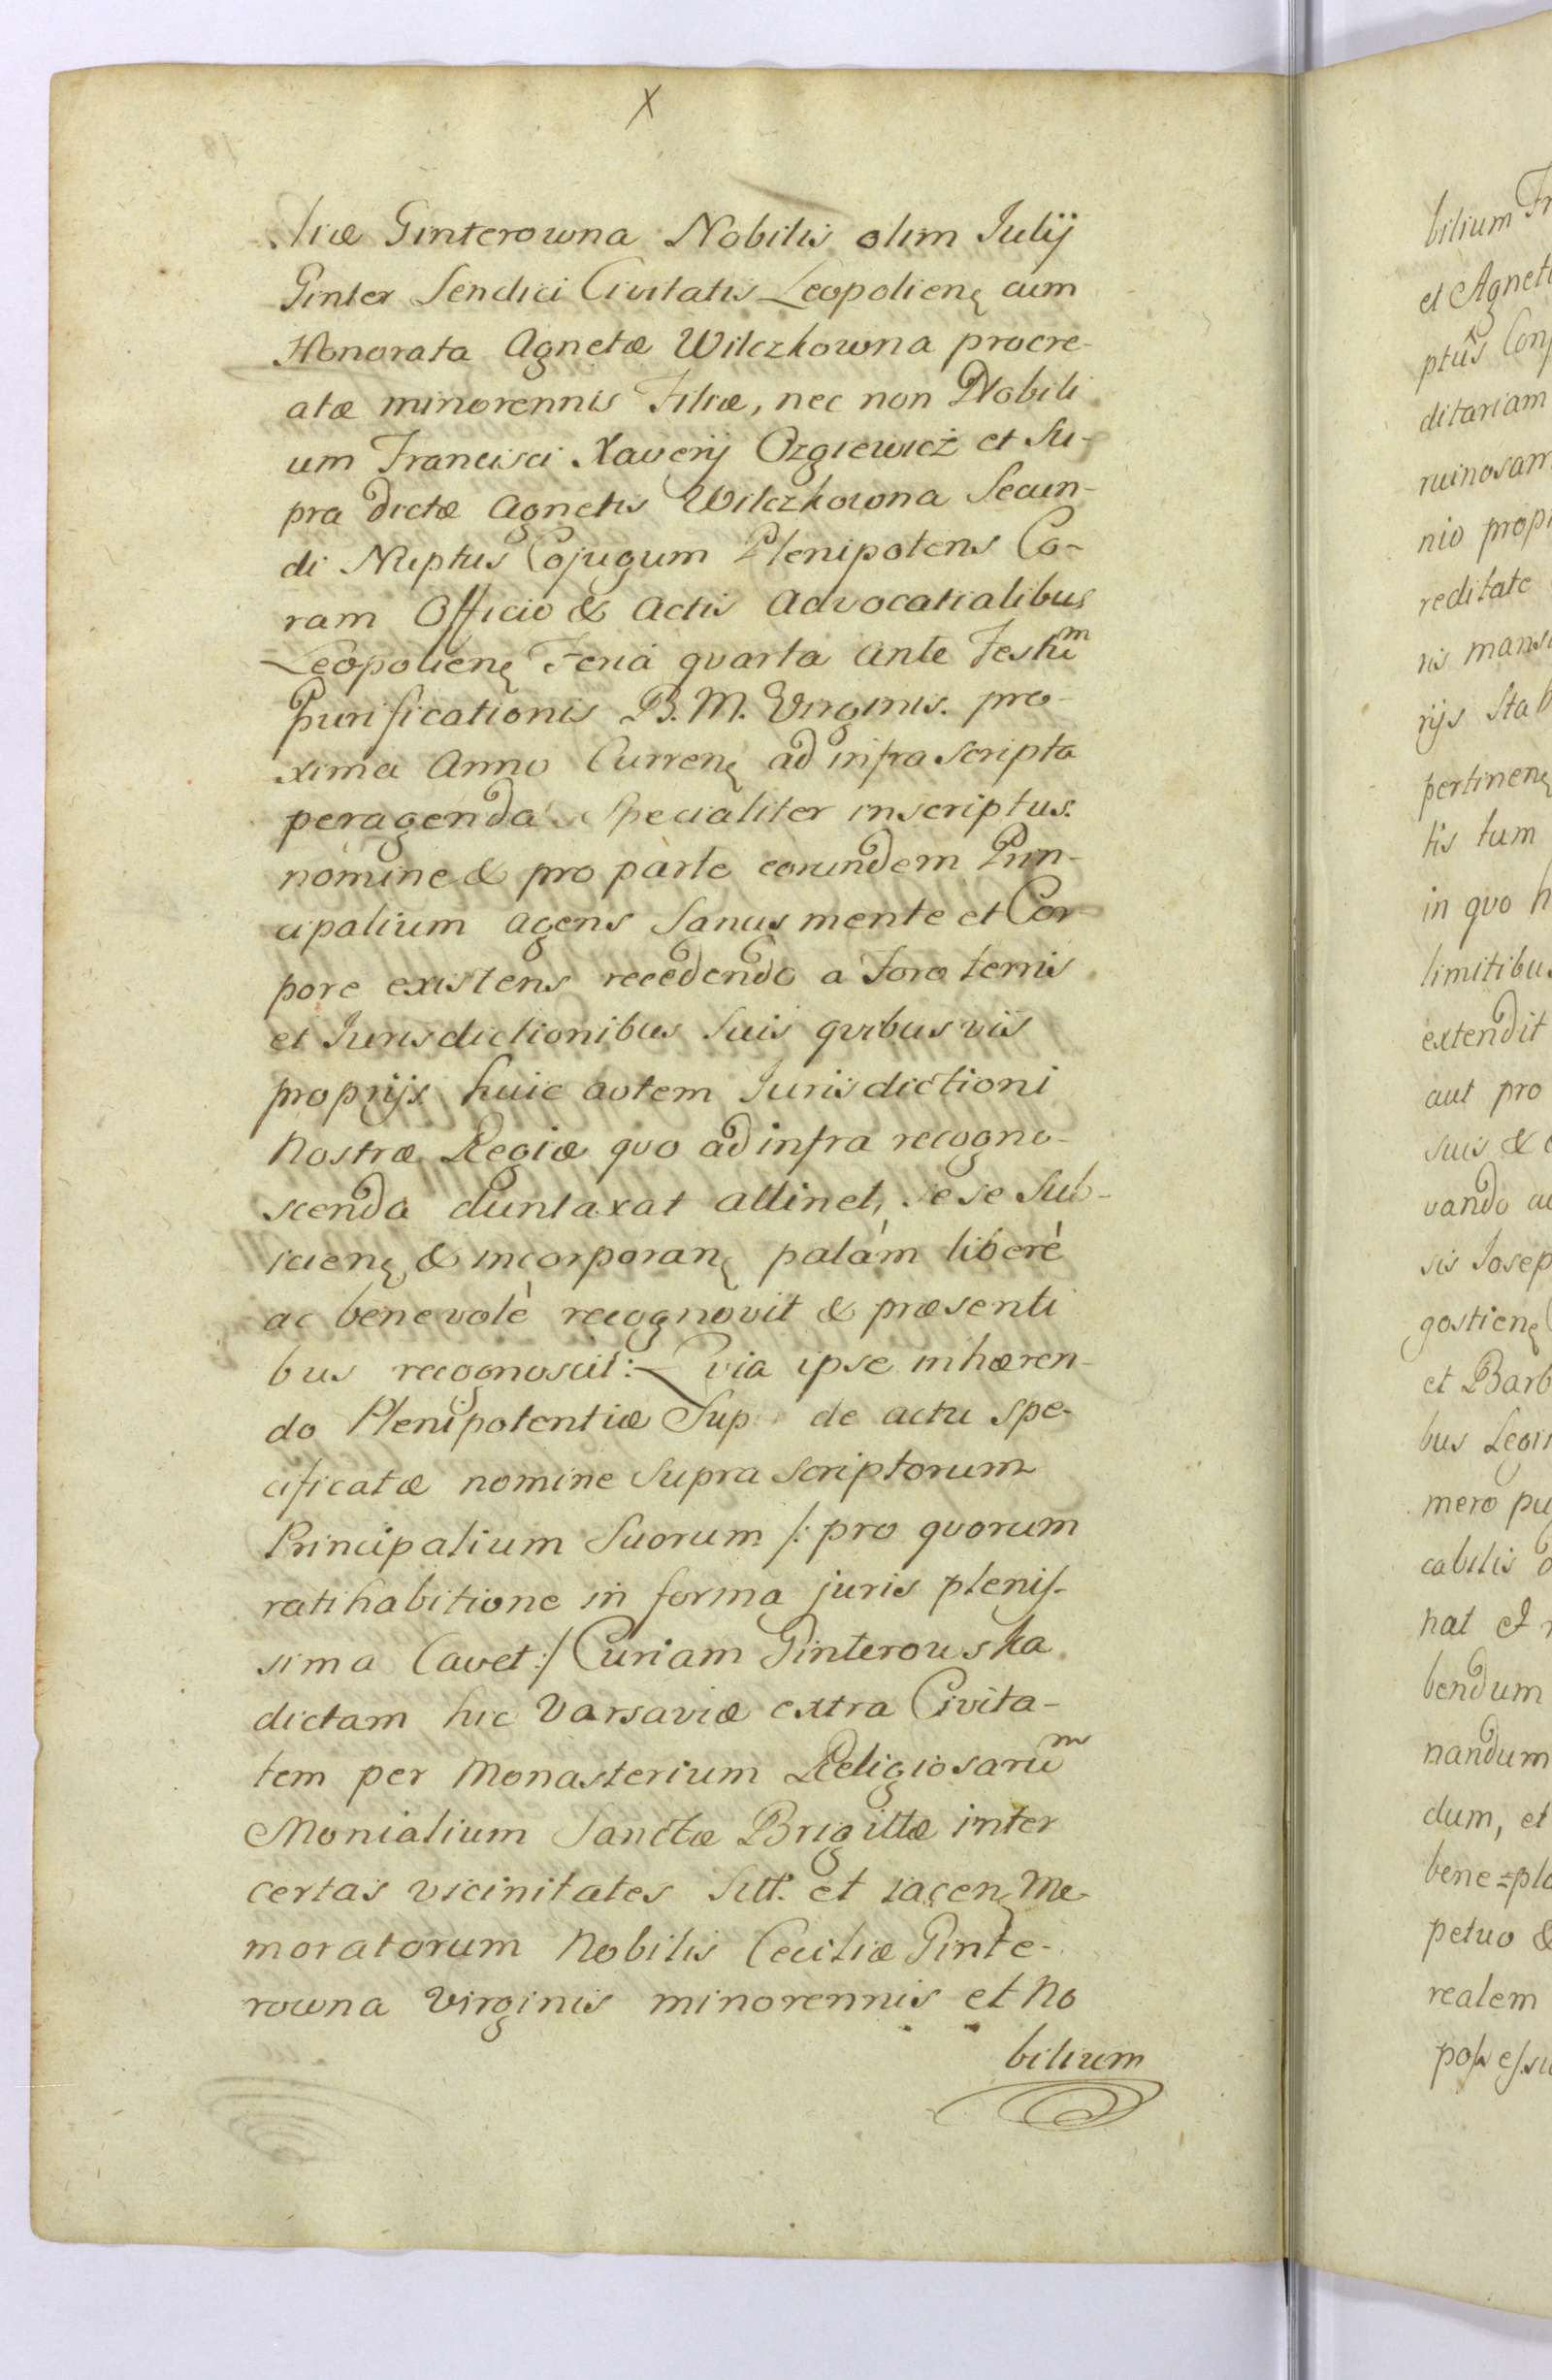 X
liæ Ginterowna Nobilis olim Julij
Ginter Sendici Civitatis Leopolienę cum
Honorata Agnetæ Wilczkowna procre-
atæ minorennis Filiæ, nec non Nobili
um Francisci Xaverij Ozgiewicż et Su-
pra dictæ Agnetis Wilczkowna Secun-
di Nuptus Cojugum Plenipotens Co-
ram Officio & Actis Advocatialibus
Leopolienę Feria quarta ante Festũm
Purificationis B. M. Virginis. pro-
xima Anno Currenę ad infra scripta
peragenda Specialiter inscriptus.
nomine & pro parte eorundem Prin-
cipalium agens Sanus mente et Cor-
pore existens recedendo a Foro terris
et Jurisdictionibus Suis qvibusvis
proprijs huic autem Jurisdictioni
Nostræ Regiæ quo ad infra recogno-
scenda duntaxat attinet, sese Sub-
icienę & incorporanę palám liberè
ac benevolè recognovit & præsenti
bus recognoscit: Qvia ipse inhæren-
do Plenipotentiæ Sup de actu spe-
cificatæ nomine Supra Scriptorum
Principalium Suorum /: pro quorum
ratihabitione in forma juris plenis-
sima Cavet :/ Curiam Ginterowska
dictam hic Varsaviæ extra Civita-
tem per Monasterium Religiosarũm
Monialium Sanctæ Brigittæ inter
certas vicinitates Sitt. et iacenę Me-
moratorum Nobilis Ceciliæ Ginte-
rowna Virginis minorennis et No
bilium
bilium Fr
et Agneti
ptûs Conj
ditariam
ruinosam
nio propr
reditate
nis mansi
rijs Stab
pertinenę
tis tum
in quo h
limitibus
extendit
aut pro
suis & 
vando au
sis Josep
gostienę
et Barb
bus Legi
mero pu
cabilis d
nat et
bendum
nandum
dum, et
bene=pla
petuo &
realem
possessi